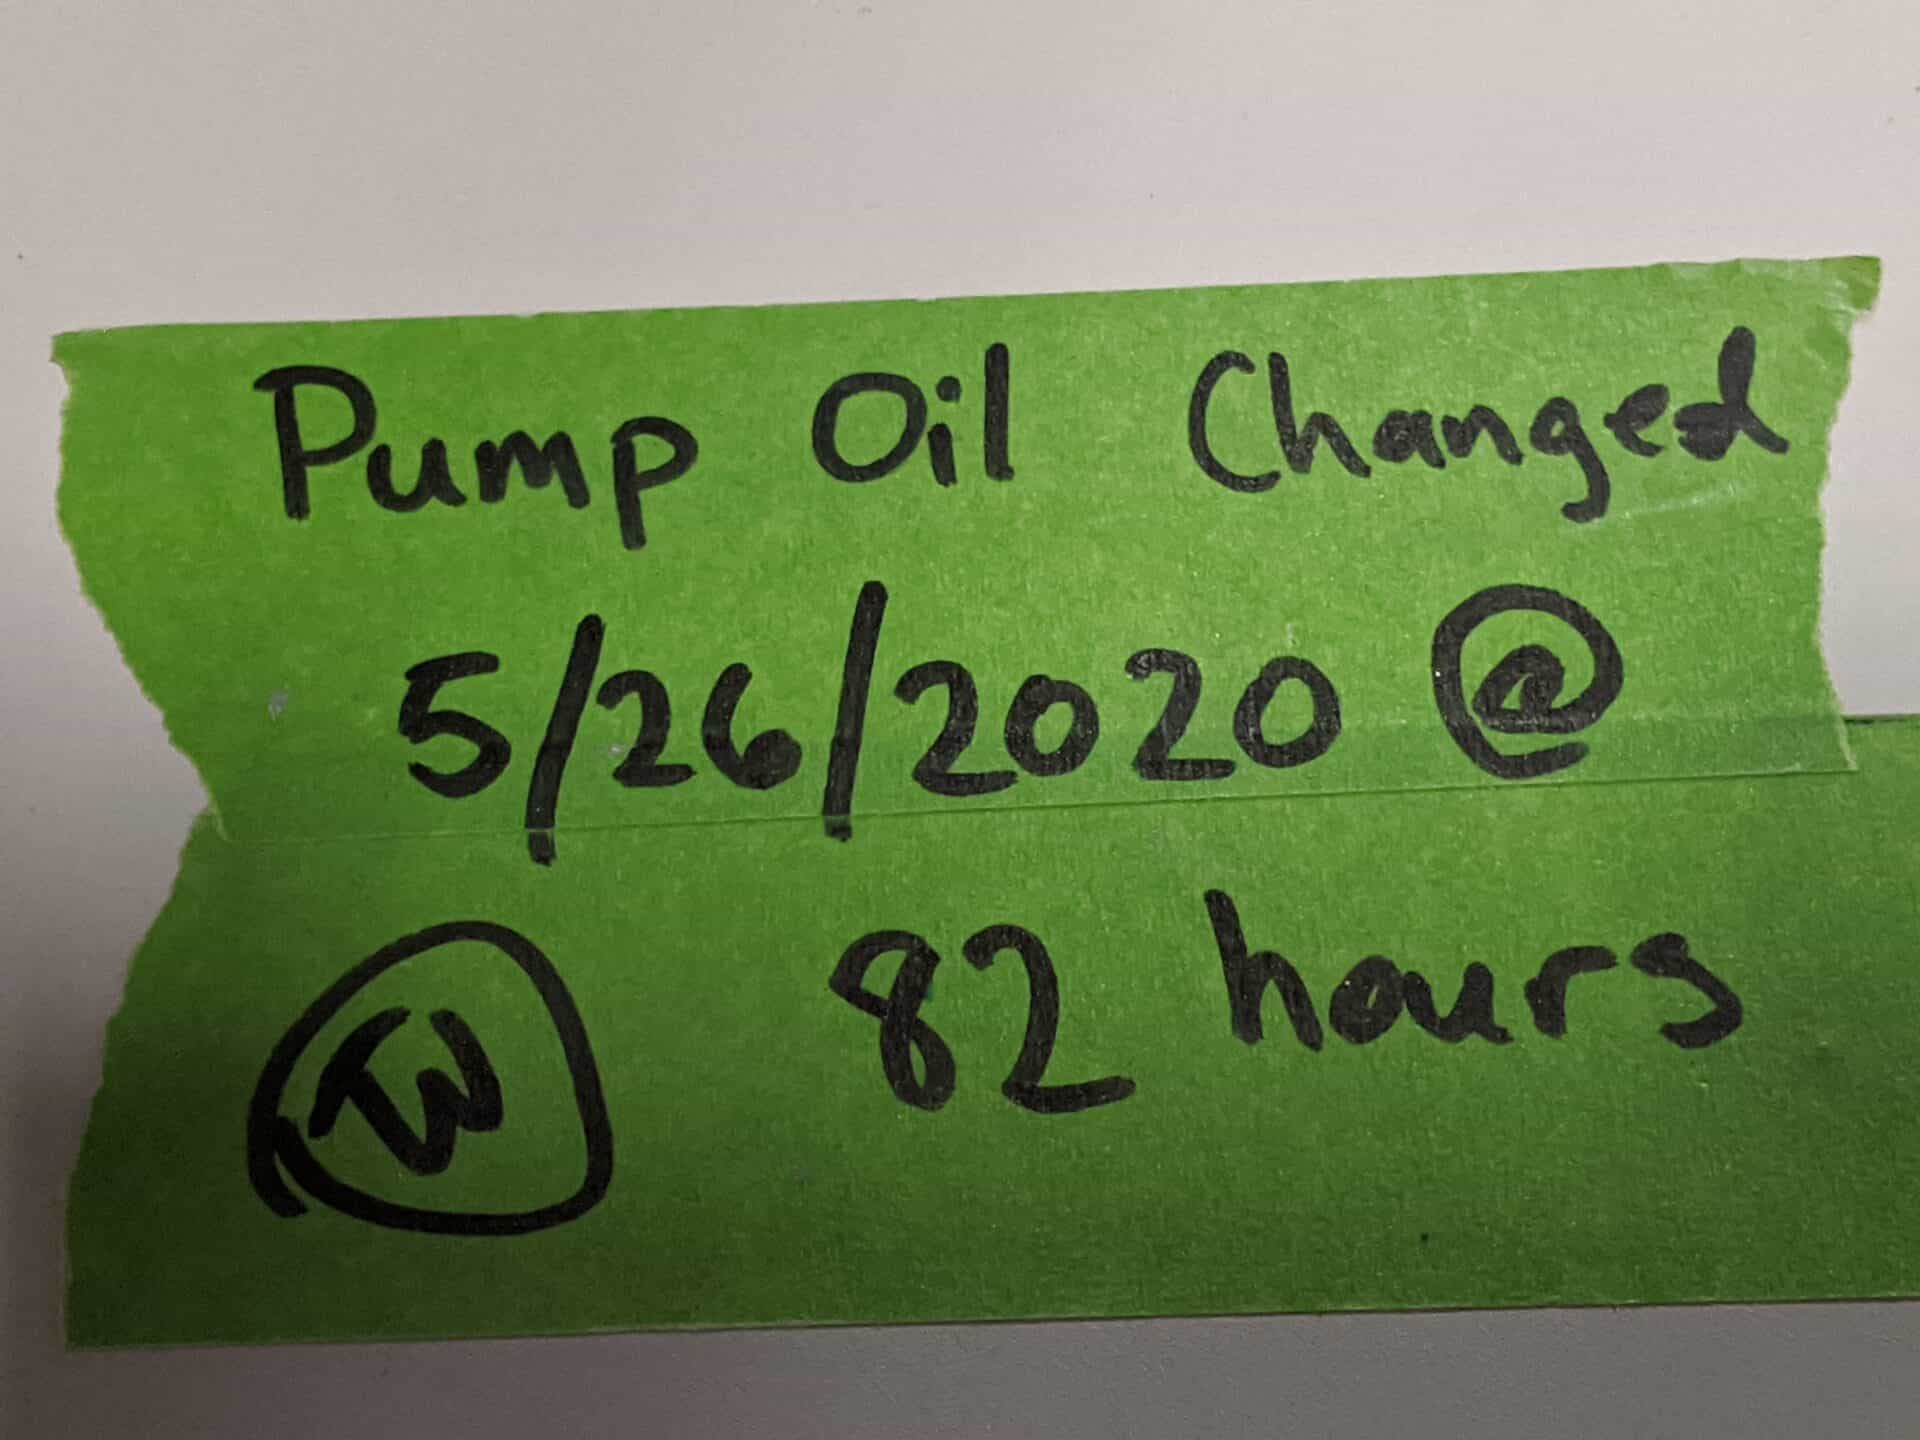 Pump Oil Changed
5/26/2020 @
TW 82 hours